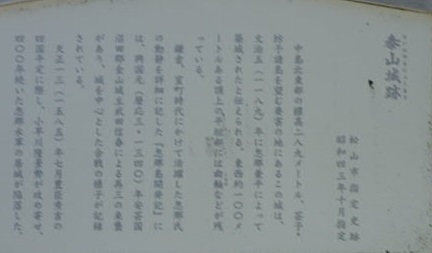 泰山城跡
松山市指定史跡
昭和四三年十月指定
中島北東部の標高二八九メートル、芸予・
防予諸島を望む要害の地にあるこの城は、
文治五(一一八九)年に忽那兼平によって
築城されたと伝えられる。東西約一〇〇メ
ートルある頂上の平坦部には曲輪などが残
っている。
鎌倉、室町時代にかけて活躍した忽那氏
の動静を詳細に記した『忽那島開発記』に
は、興国元(暦応三・一三四〇)年安芸国
沼田郡金山城主武田信春による再三の来襲
があり、城を中心とした合戦の様子が記録
されている。
天正一三(一五八五)年七月豊臣秀吉の
四国平定に際し、小早川隆景勢が攻め寄せ、
四〇〇年続いた忽那水軍の墓城が陥落した。